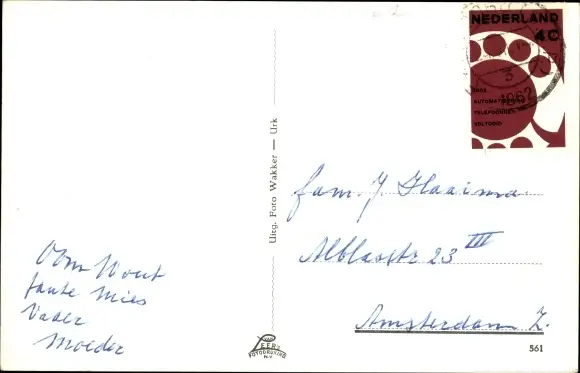 NEDERLAND
4C
1962
AUTOMATISERING
TELEFOONNET
VOLTOOID
3
1962
Uitg. Foto Wakker — Urk
fam. J. Haaima
Alblasstr 23 III
Amsterdam Z.
Oom Wout
tante Mies
Vader
Moeder
LEERS
FOTODRUK
N.V.
561